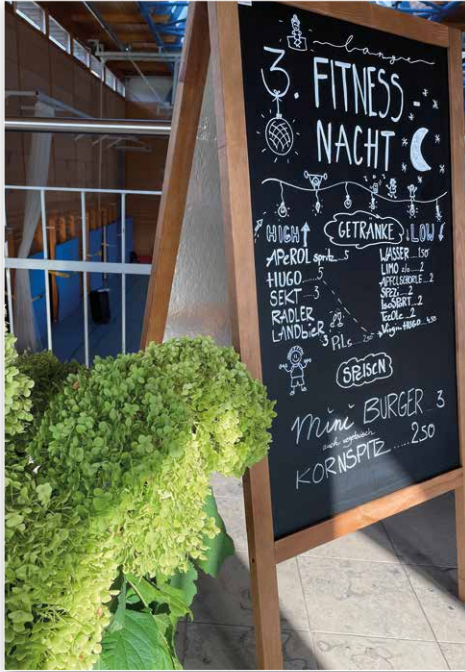 3. lange
FITNESS-
NACHT
GETRÄNKE
HIGH
APEROL spritz 5
HUGO 5
SEKT 3
RADLER
LANDbier 3
Pils 2,50
LOW
WASSER 1,50
LIMO 2
APFELSCHORLE 2
SPEZI 2
ISOSPORT 2
TeeOle 2
Virgin HUGO 4,50
SPEISEN
Mini BURGER 3
auch vegetarisch
KORNSPITZ ..... 2,50